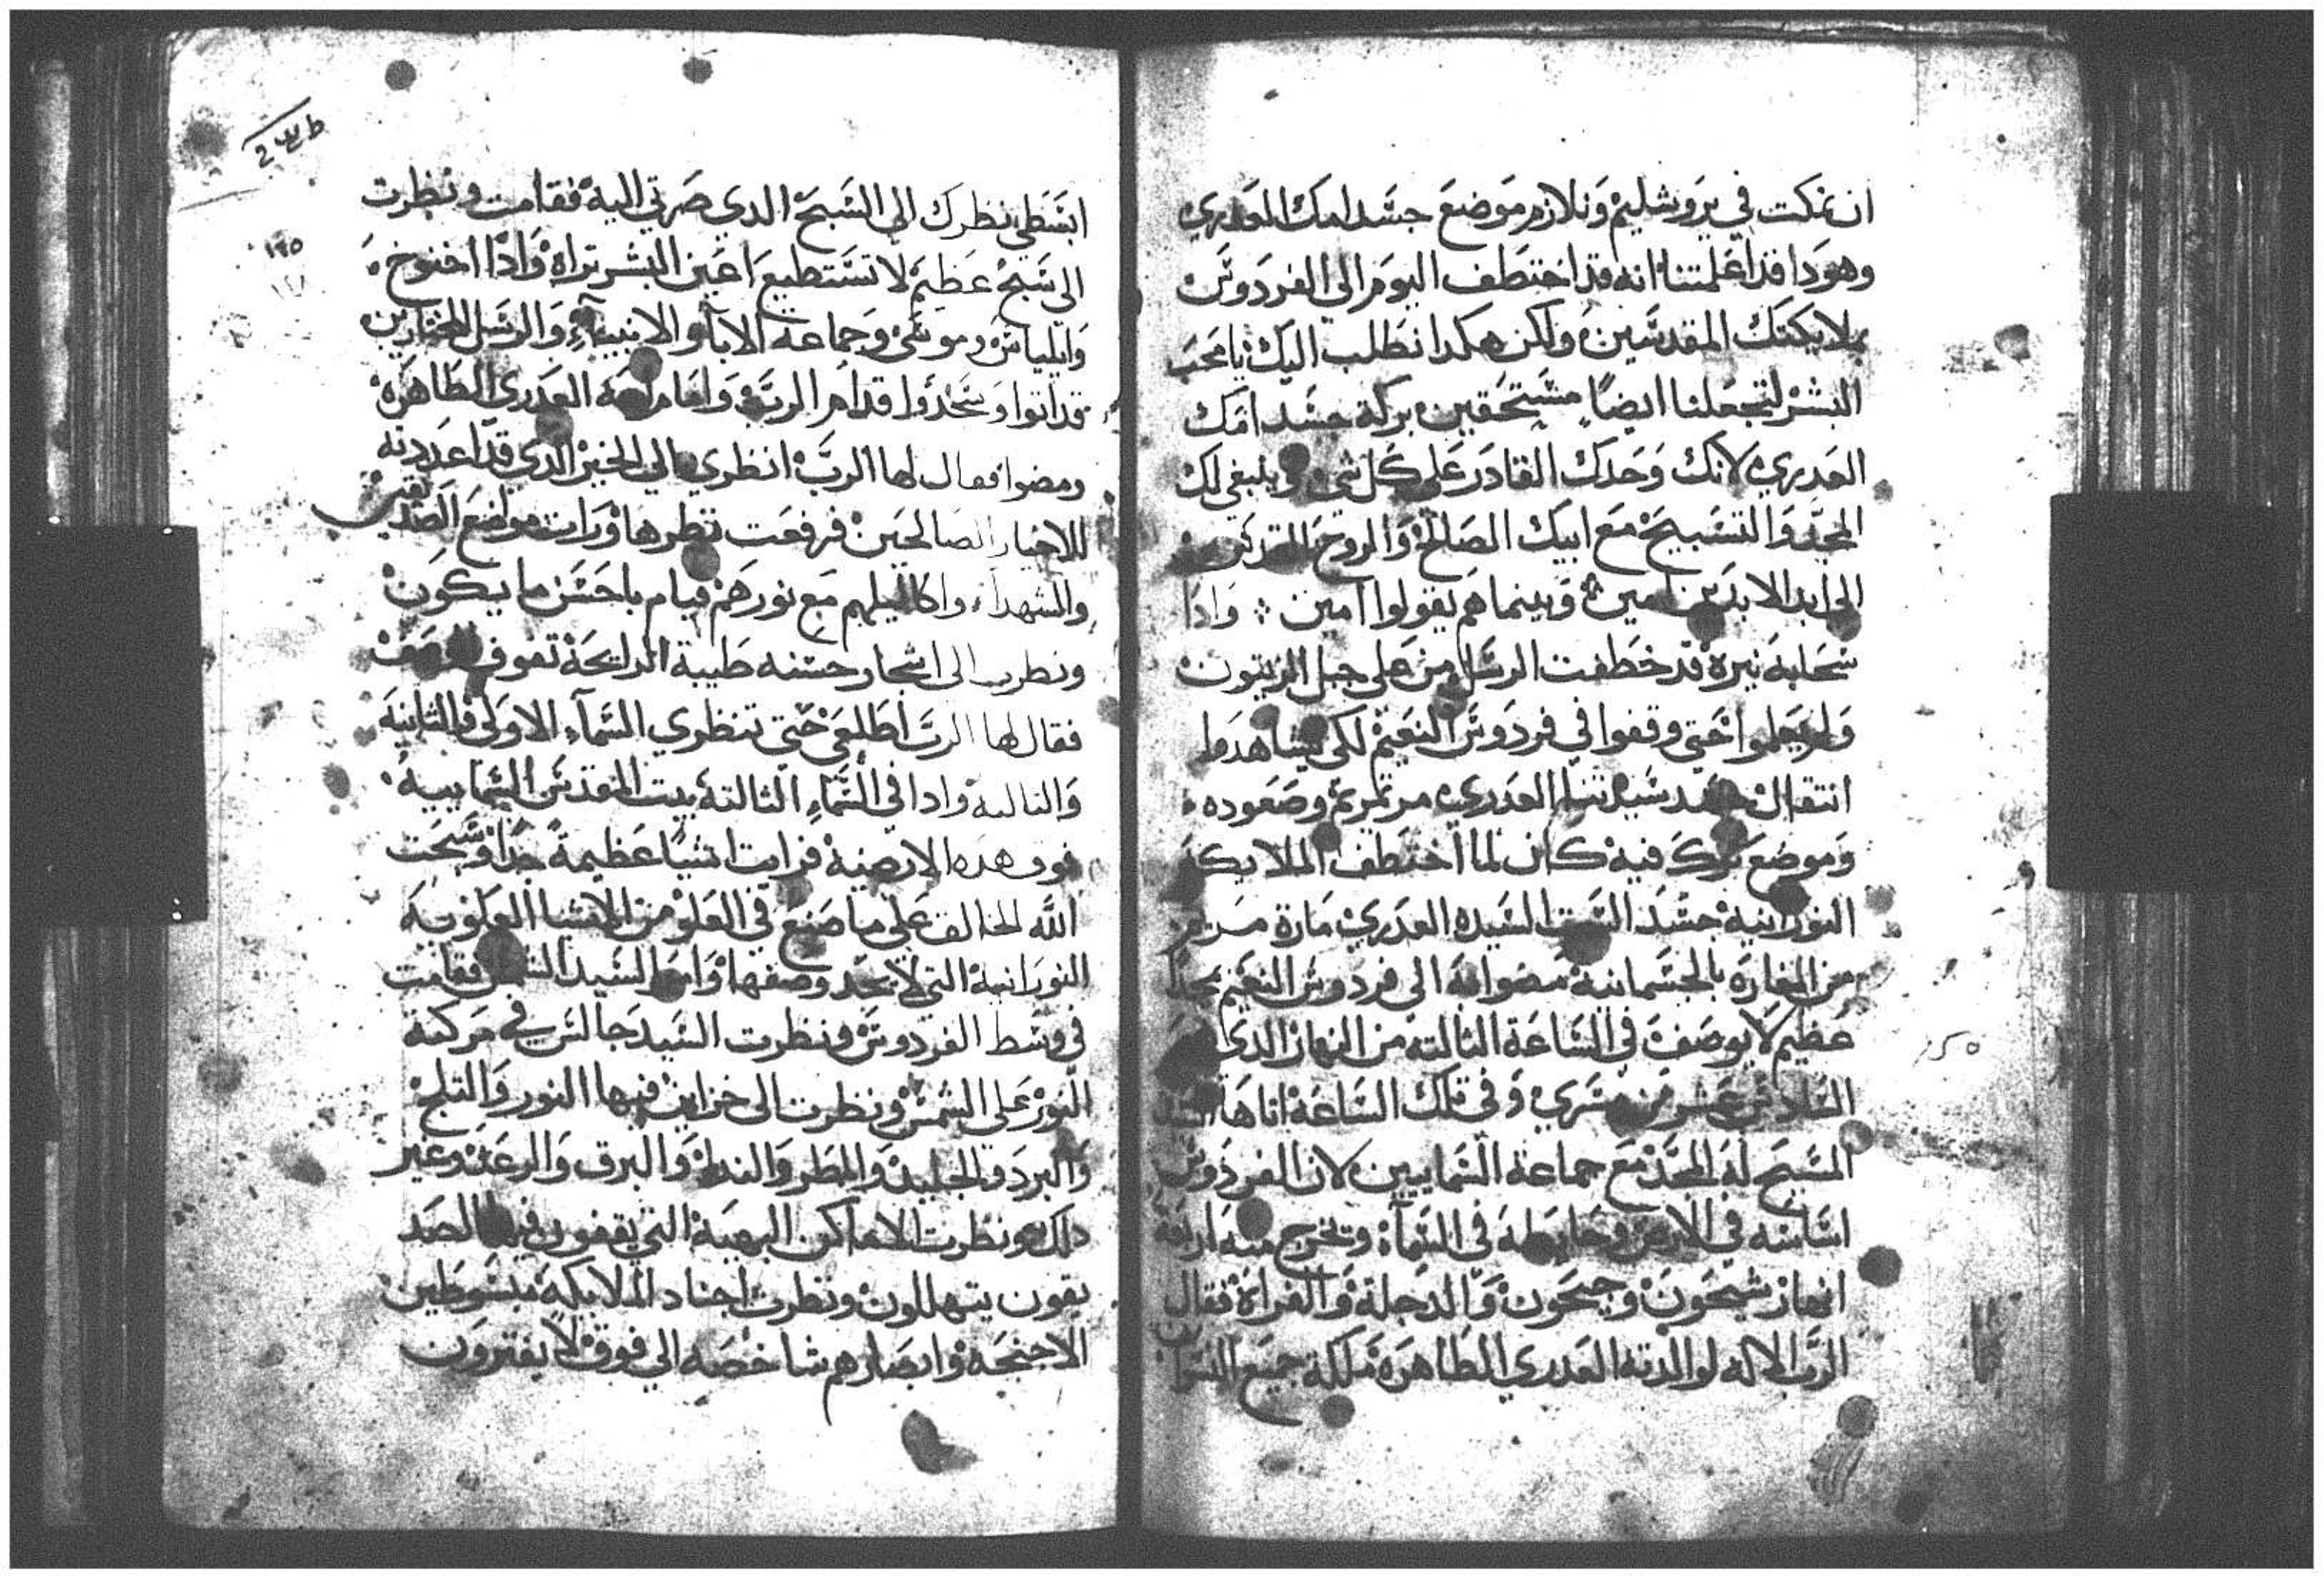 ان نمكت في يروشليم ونلازم موضع جسد امك العدري
وهودا قد اعلمتنا انه قد اختطف اليوم الي الفردوس
بملايكتك المقدسين ولكن هكدا نطلب اليك يا محب
البشر لتجعلنا ايضا مستحقين بركة جسد امك
العدري لانك وحدك القادر علي كل شي وينبغي لك
المجد والتسبيح مع ابيك الصالح والروح القدس
الي ابد الابدين امين وبينما هم يقولوا امين وادا
سحابه نيره قد خطفت الرسل من علي جبل الزيتون
ولم يعلموا حتي وقفوا في فردوس النعيم لكي يشاهدوا
انتقال جسد سيدتنا العدري مرتمريم وصعوده
وموضع ترك فيه كان لما اختطف الملايكة
النورانيه جسد الست السيده العدري مارة مريم
من المغاره بالجسمانيه مضوا به الي فردوس النعيم بمجد
عظيم لا يوصف في الساعة التالته من النهار الدي
السادس عشر من مسري وفي تلك الساعة اتاها السيد
المسيح له المجد مع جماعة السماييين لان الفردوس
اساسه في الارض وحايطه في السماء وتخرج منه اربعة
انهار شيحون وجيحون والدجلة والفراة فقال
الرب الاله لوالدته العدري الطاهره ملكة جميع النسوان
ط
٢
ابسطي نظرك الي الشبح الدي صرتي اليه فقامت ونظرت
الي شبح عظيم لا تستطيع اعين البشر تراه وادا اخنوخ
١٢٥
وايلياس وموسي وجماعة الابا والانبياء والرسل المختارين
قد اتوا وسجدوا قدام الرب وامام امه العدري الطاهره
ومضوا فقال لها الرب انظري الي الخير الدي قد اعددته
للاخيار الصالحين فرفعت نظرها ورات مواضع الصديقين
والشهداء واكاليلهم مع نورهم قيام باحسن ما يكون
ونظرت الي اشجار حسنه طيبة الرايحة تفوق الوصف
فقال لها الرب اطلعي حتي تنظري السماء الاولي والتانيه
والتالته وادا في السماء التالته بيت المقدس السماييه
فوق هده الارضيه فرات اشيا عظيمة جدا وسبحت
الله الخالق علي ما صنع في العلو من الاشيا العلويه
النورانيه التي لا يحد وصفها وامر السيد الشمس فقامت
في وسط الفردوس ونظرت السيد جالس في مركبة
النور علي الشمس ونظرت الي خزاين فيها النور والتلج
والبرد والجليد والمطر والندا والبرق والرعد وغير
دلك ونظرت الاماكن البهية التي يقفون فيها الصد
يقون يتهللون ونظرت اجناد الملايكة مبسوطين
الاجنحه وابصارهم شاخصه الي فوق لا يفترون